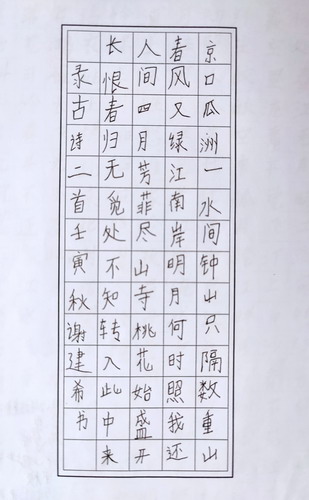 京口瓜洲一水间钟山只隔数重山
春风又绿江南岸明月何时照我还
人间四月芳菲尽山寺桃花始盛开
长恨春归无觅处不知转入此中来
录古诗二首壬寅秋谢建希书